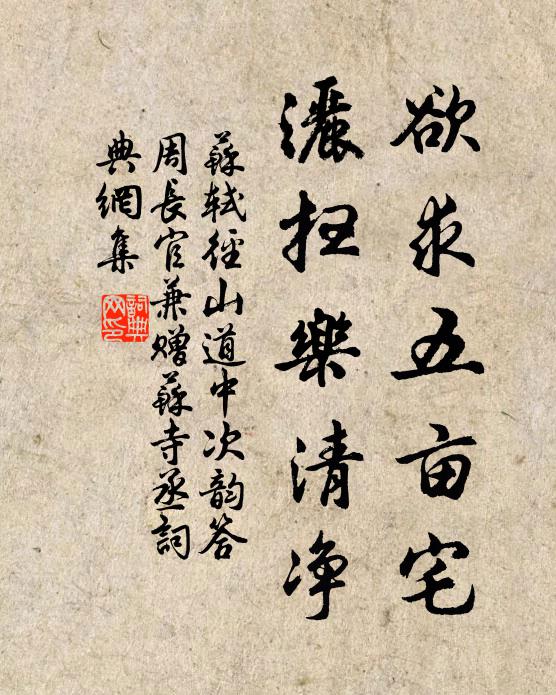 欲求五亩宅
灑扫樂清净
蘇軾徑山道中次韵答
周長官兼赠蘇寺丞詞
典網集
詞典网印